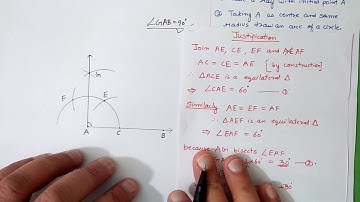 ∠GAB=90°
a ray with initial point A
② Taking A as centre and same
radius draw an arc of a circle.
Justification
Join AE, CE, EF and AF
AC = CE = AE [by construction]
∴ ΔACE is a equilateral Δ
⇒ ∠CAE = 60° — ①
Similarly AE = EF = AF
∴ ΔAEF is an equilateral Δ
⇒ ∠EAF = 60°
because AG bisects ∠EAF
= 30° — ②
G
F
E
A
C
B